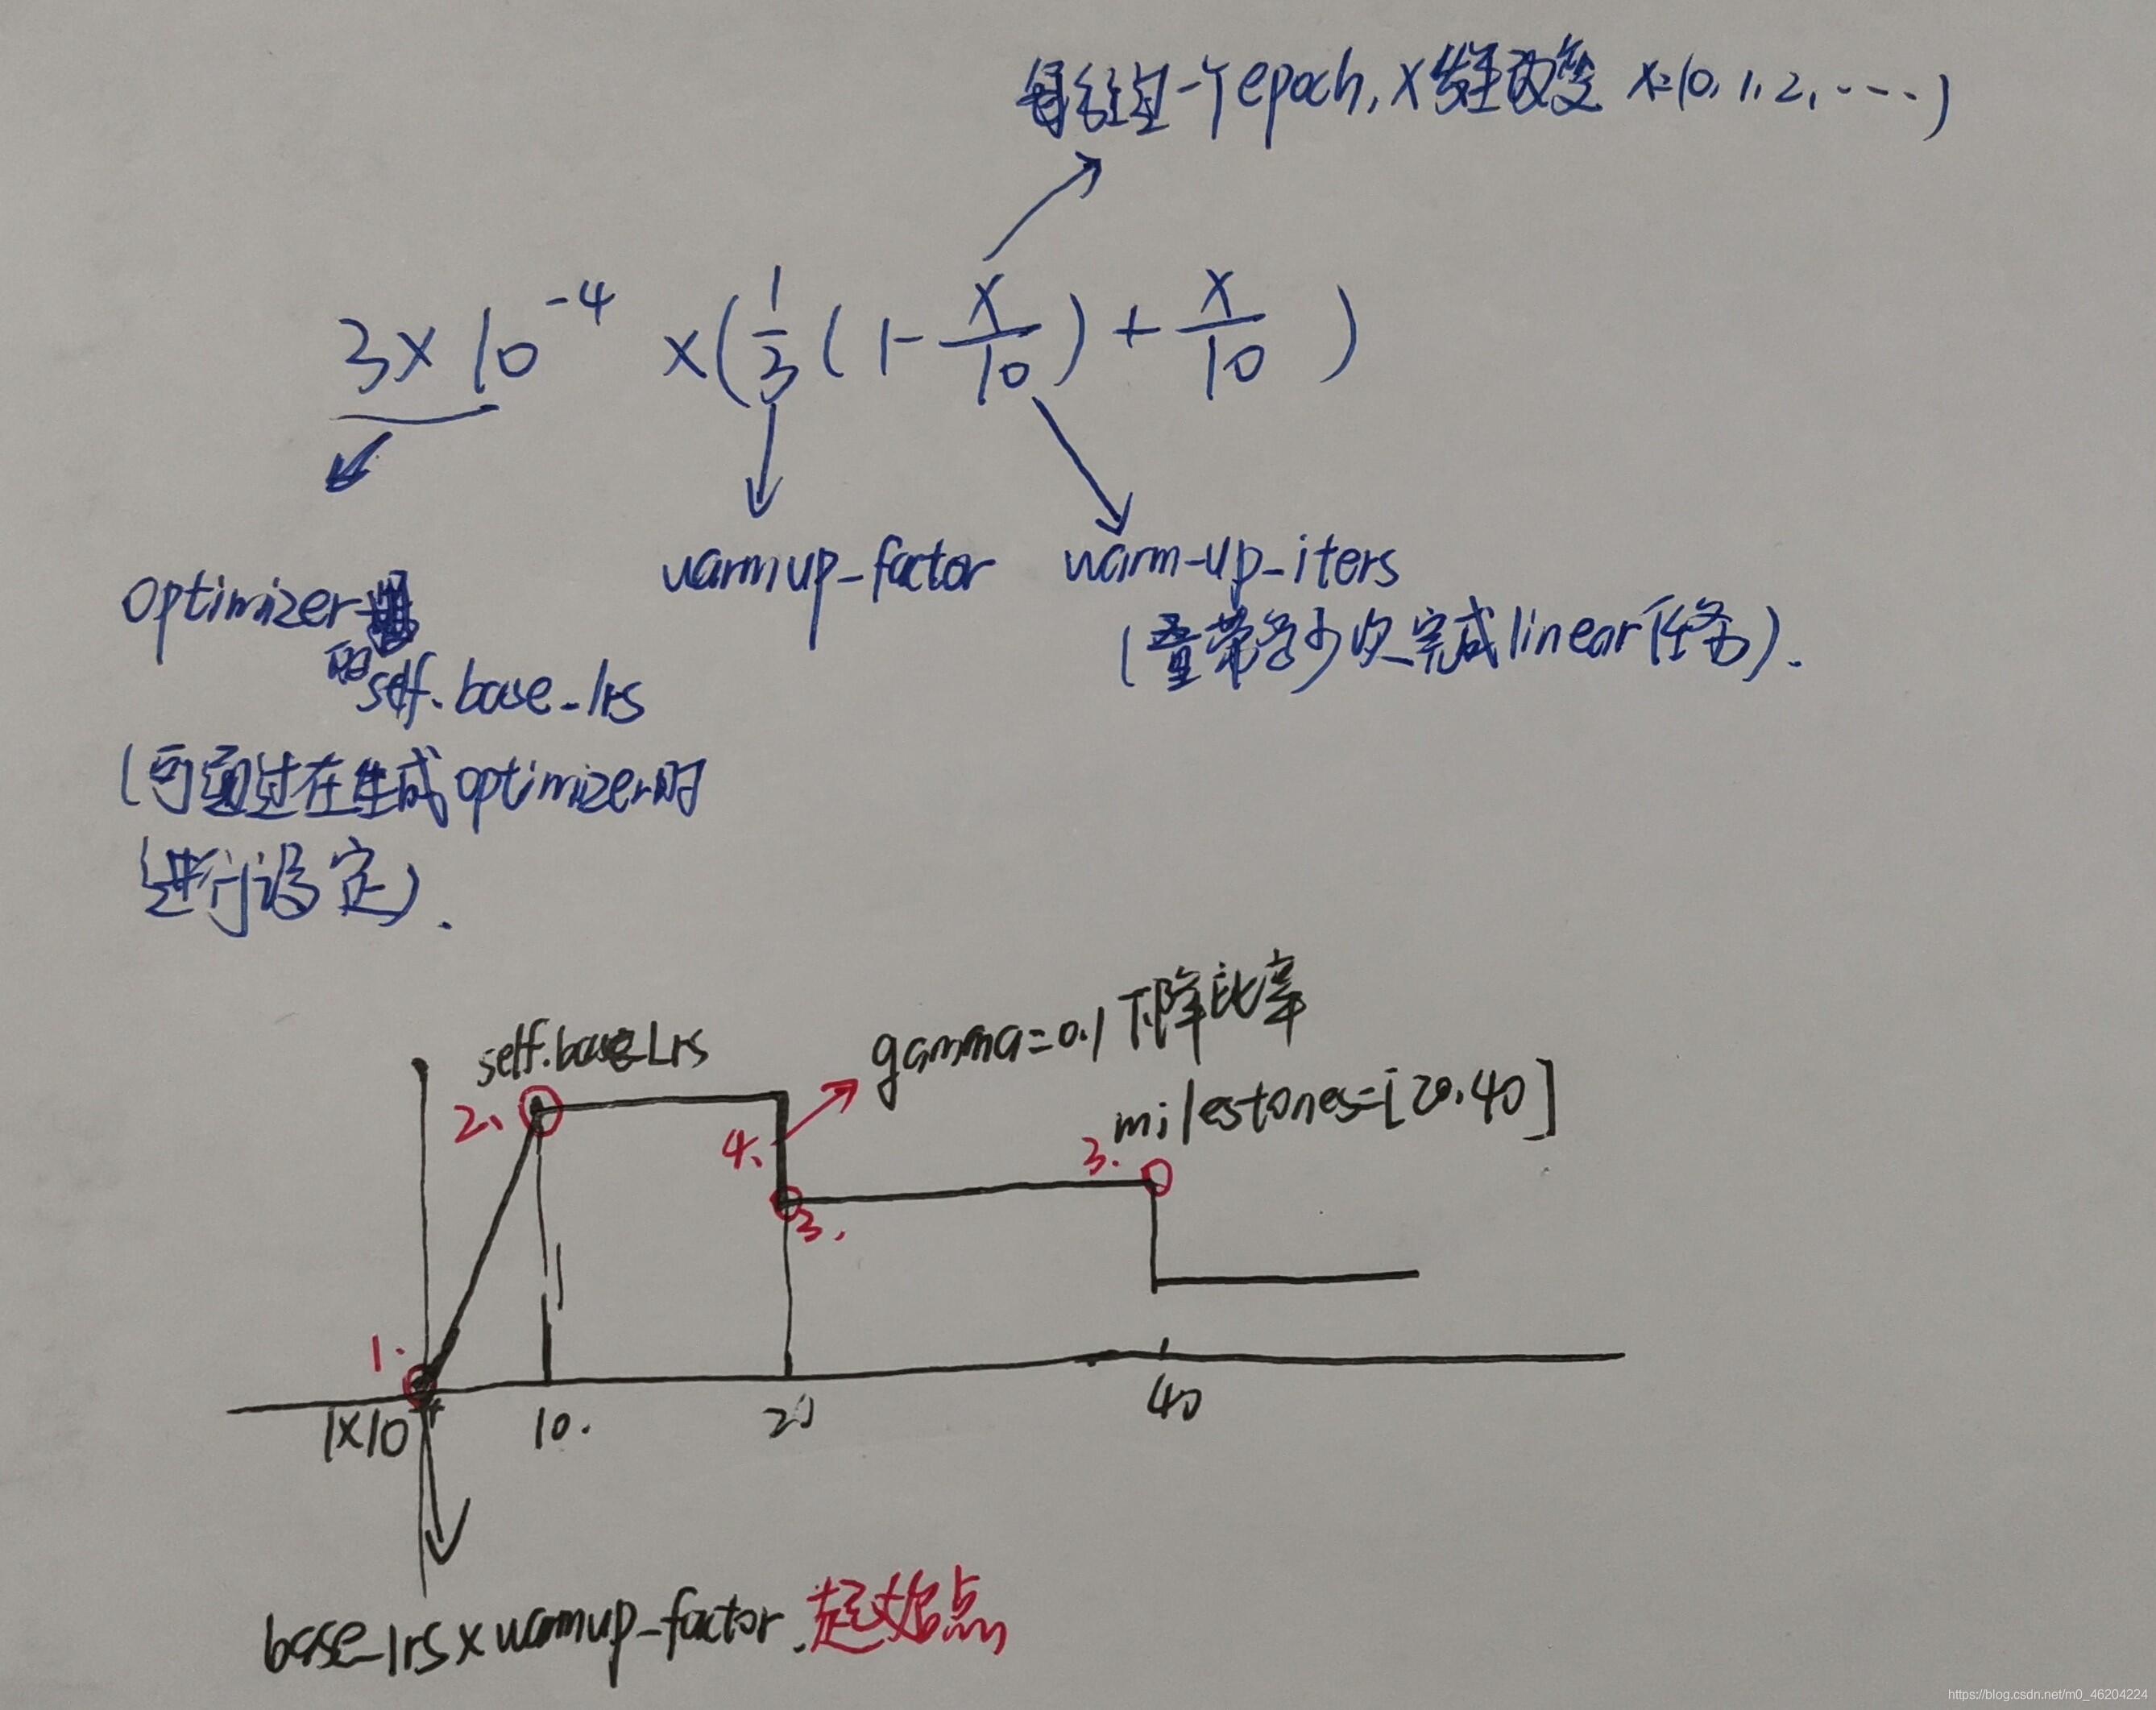 每经过一个epoch, x发生改变 x=(0, 1, 2, ····)
3×10^-4 ×(1/3(1-x/10)+x/10)
warmup_factor
warm-up_iters
(需要多少次完成linear任务).
optimizer
的self.base_lrs
(可通过在生成optimizer时
进行设定).
gamma=0.1 下降比率
self.base_Lrs
milestones=[20,40]
2、
4.
3.
3.
1.
1×10^-4
10.
20
40
base_lrs×warmup_factor.起始点
https://blog.csdn.net/m0_46204224